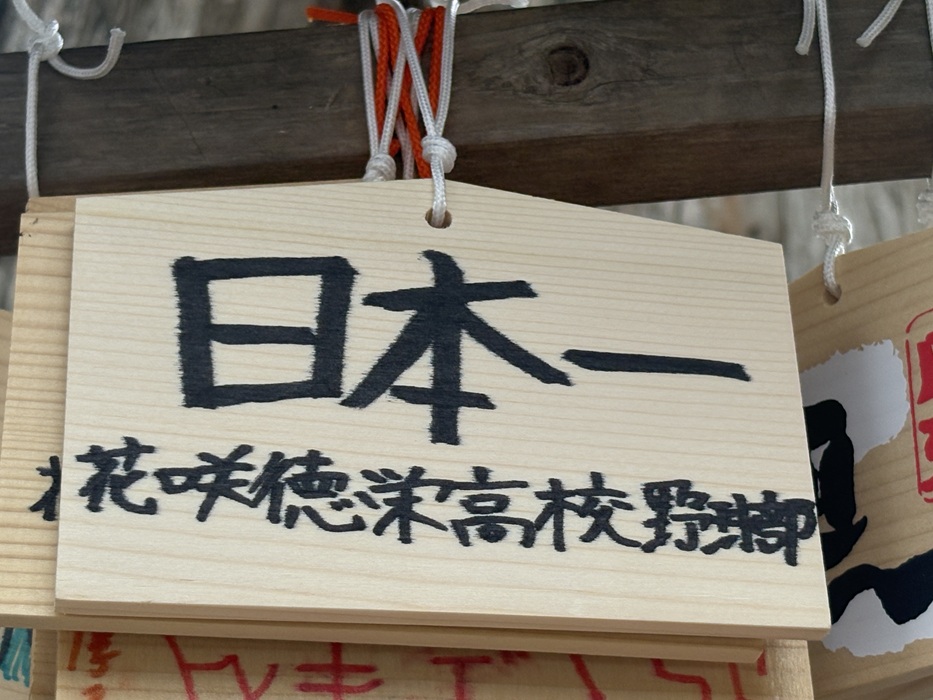 日本一
花咲徳栄高校野球部